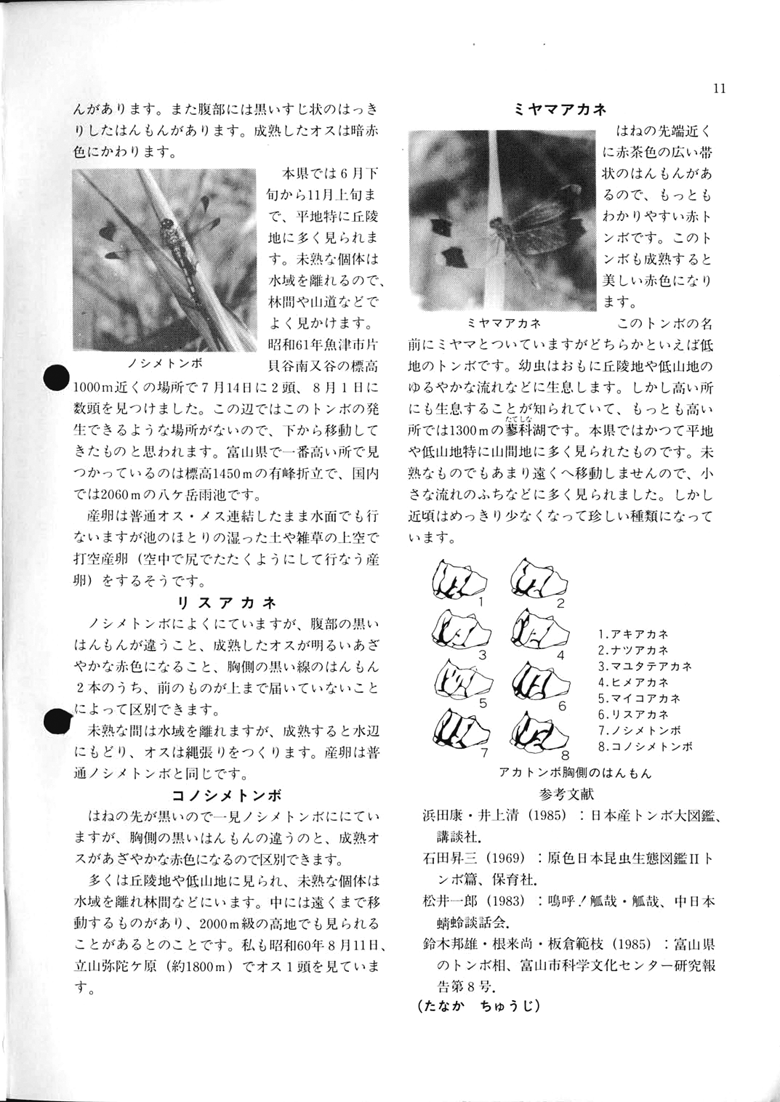 11
んがあります。また腹部には黒いすじ状のはっき
りしたはんもんがあります。成熟したオスは暗赤
色にかわります。
本県では6月下
旬から11月上旬ま
で、平地特に丘陵
地に多く見られま
す。未熟な個体は
水域を離れるので、
林間や山道などで
よく見かけます。
昭和61年魚津市片
貝谷南又谷の標高
ノシメトンボ
1000m近くの場所で7月14日に2頭、8月1日に
数頭を見つけました。この辺ではこのトンボの発
生できるような場所がないので、下から移動して
きたものと思われます。富山県で一番高い所で見
つかっているのは標高1450mの有峰折立で、国内
では2060mの八ケ岳雨池です。
産卵は普通オス・メス連結したまま水面でも行
ないますが池のほとりの湿った土や雑草の上空で
打空産卵(空中で尻でたたくようにして行なう産
卵)をするそうです。
リスアカネ
ノシメトンボによくにていますが、腹部の黒い
はんもんが違うこと、成熟したオスが明るいあざ
やかな赤色になること、胸側の黒い線のはんもん
2本のうち、前のものが上まで届いていないこと
によって区別できます。
未熟な間は水域を離れますが、成熟すると水辺
にもどり、オスは縄張りをつくります。産卵は普
通ノシメトンボと同じです。
コノシメトンボ
はねの先が黒いので一見ノシメトンボににてい
ますが、胸側の黒いはんもんの違うのと、成熟オ
スがあざやかな赤色になるので区別できます。
多くは丘陵地や低山地に見られ、未熟な個体は
水域を離れ林間などにいます。中には遠くまで移
動するものがあり、2000m級の高地でも見られる
ことがあるとのことです。私も昭和60年8月11日、
立山弥陀ケ原(約1800m)でオス1頭を見ていま
す。
ミヤマアカネ
はねの先端近く
に赤茶色の広い帯
状のはんもんがあ
るので、もっとも
わかりやすい赤ト
ンボです。このト
ンボも成熟すると
美しい赤色になり
ます。
ミヤマアカネ
このトンボの名
前にミヤマとついていますがどちらかといえば低
地のトンボです。幼虫はおもに丘陵地や低山地の
ゆるやかな流れなどに生息します。しかし高い所
にも生息することが知られていて、もっとも高い
たてしな
所では1300mの蓼科湖です。本県ではかつて平地
や低山地特に山間地に多く見られたものです。未
熟なものでもあまり遠くへ移動しませんので、小
さな流れのふちなどに多く見られました。しかし
近頃はめっきり少なくなって珍しい種類になって
います。
1
2
3
4
5
6
7
8
1.アキアカネ
2.ナツアカネ
3.マユタテアカネ
4.ヒメアカネ
5.マイコアカネ
6.リスアカネ
7.ノシメトンボ
8.コノシメトンボ
アカトンボ胸側のはんもん
参考文献
浜田康・井上清(1985):日本産トンボ大図鑑、
講談社.
石田昇三(1969):原色日本昆虫生態図鑑IIト
ンボ篇、保育社.
松井一郎(1983):鳴呼!觚哉・觚哉、中日本
蜻蛉談話会.
鈴木邦雄・根来尚・板倉範枝(1985):富山県
のトンボ相、富山市科学文化センター研究報
告第8号.
(たなか ちゅうじ)